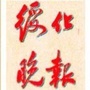 绥化
晚报